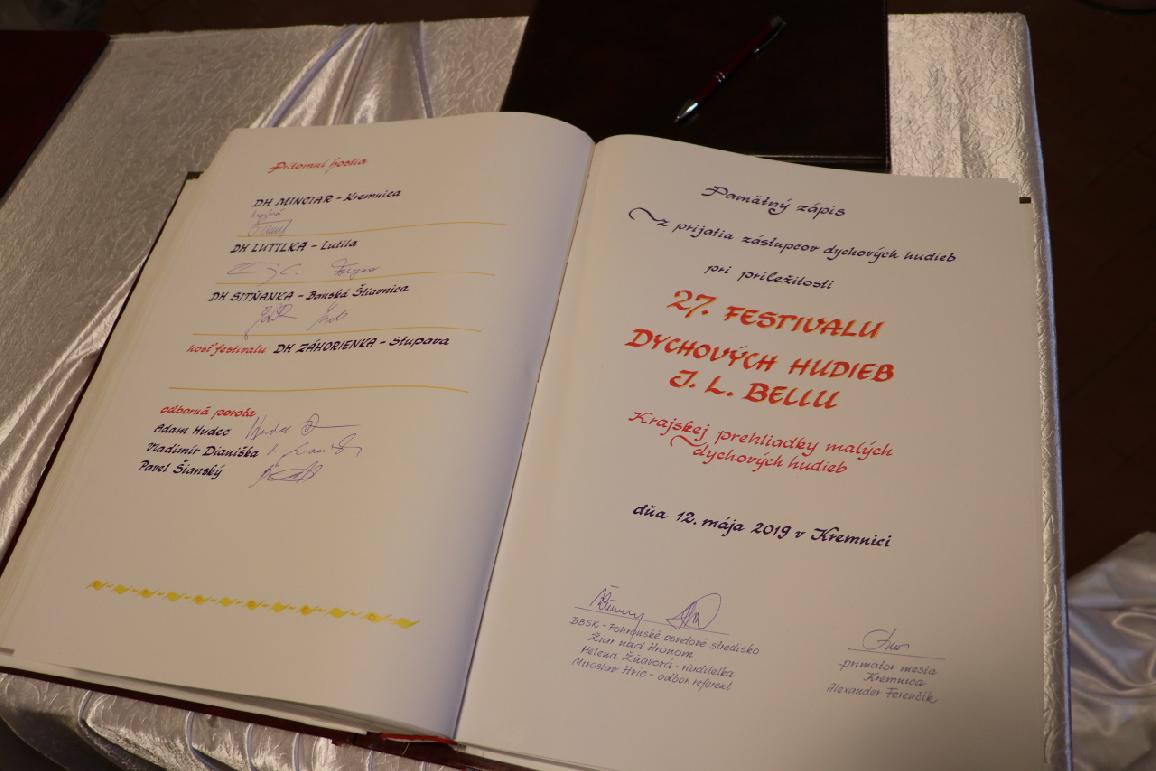 Prítomní hostia
DH MINCIAR - Kremnica
DH LUTILKA - Lutila
DH SITŇANKA - Banská Štiavnica
hosť festivalu DH ZÁHORIENKA - Stupava
odborná porota
Adam Hudec
Vladimír Dianiška
Pavel Šianský
Pamätný zápis
z prijatia zástupcov dychových hudieb
pri príležitosti
27. FESTIVALU
DYCHOVÝCH HUDIEB
J. L. BELLU
Krajskej prehliadky malých
dychových hudieb
dňa 12. mája 2019 v Kremnici
BBSK - Pohronské osvetové stredisko
Žiar nad Hronom
Helena Žňavová - riaditeľka
Miroslav Hric - odbor. referent
primátor mesta
Kremnica
Alexander Ferenčík